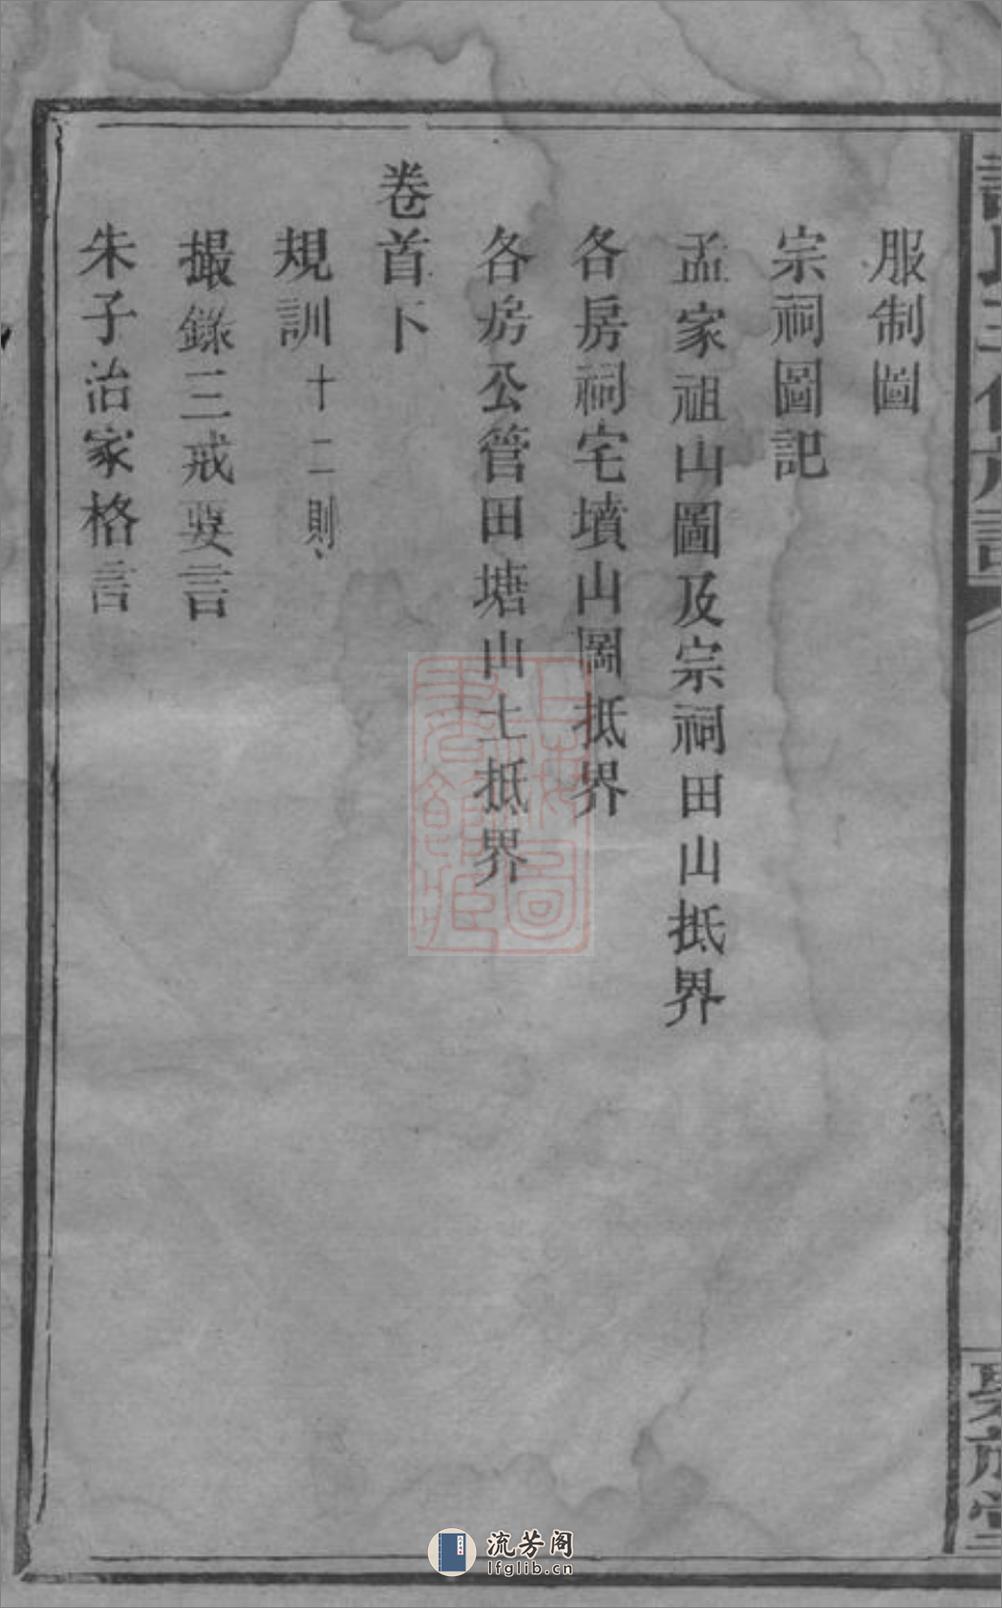 服制圖
宗祠圖記
孟家祖山圖及宗祠田山抵界
各房祠宅墳山圖抵界
各房公管田塘山土抵界
卷首下
規訓十二則
撮錄三戒要言
朱子治家格言
上海圖書館藏
流芳阁
lfglib.cn